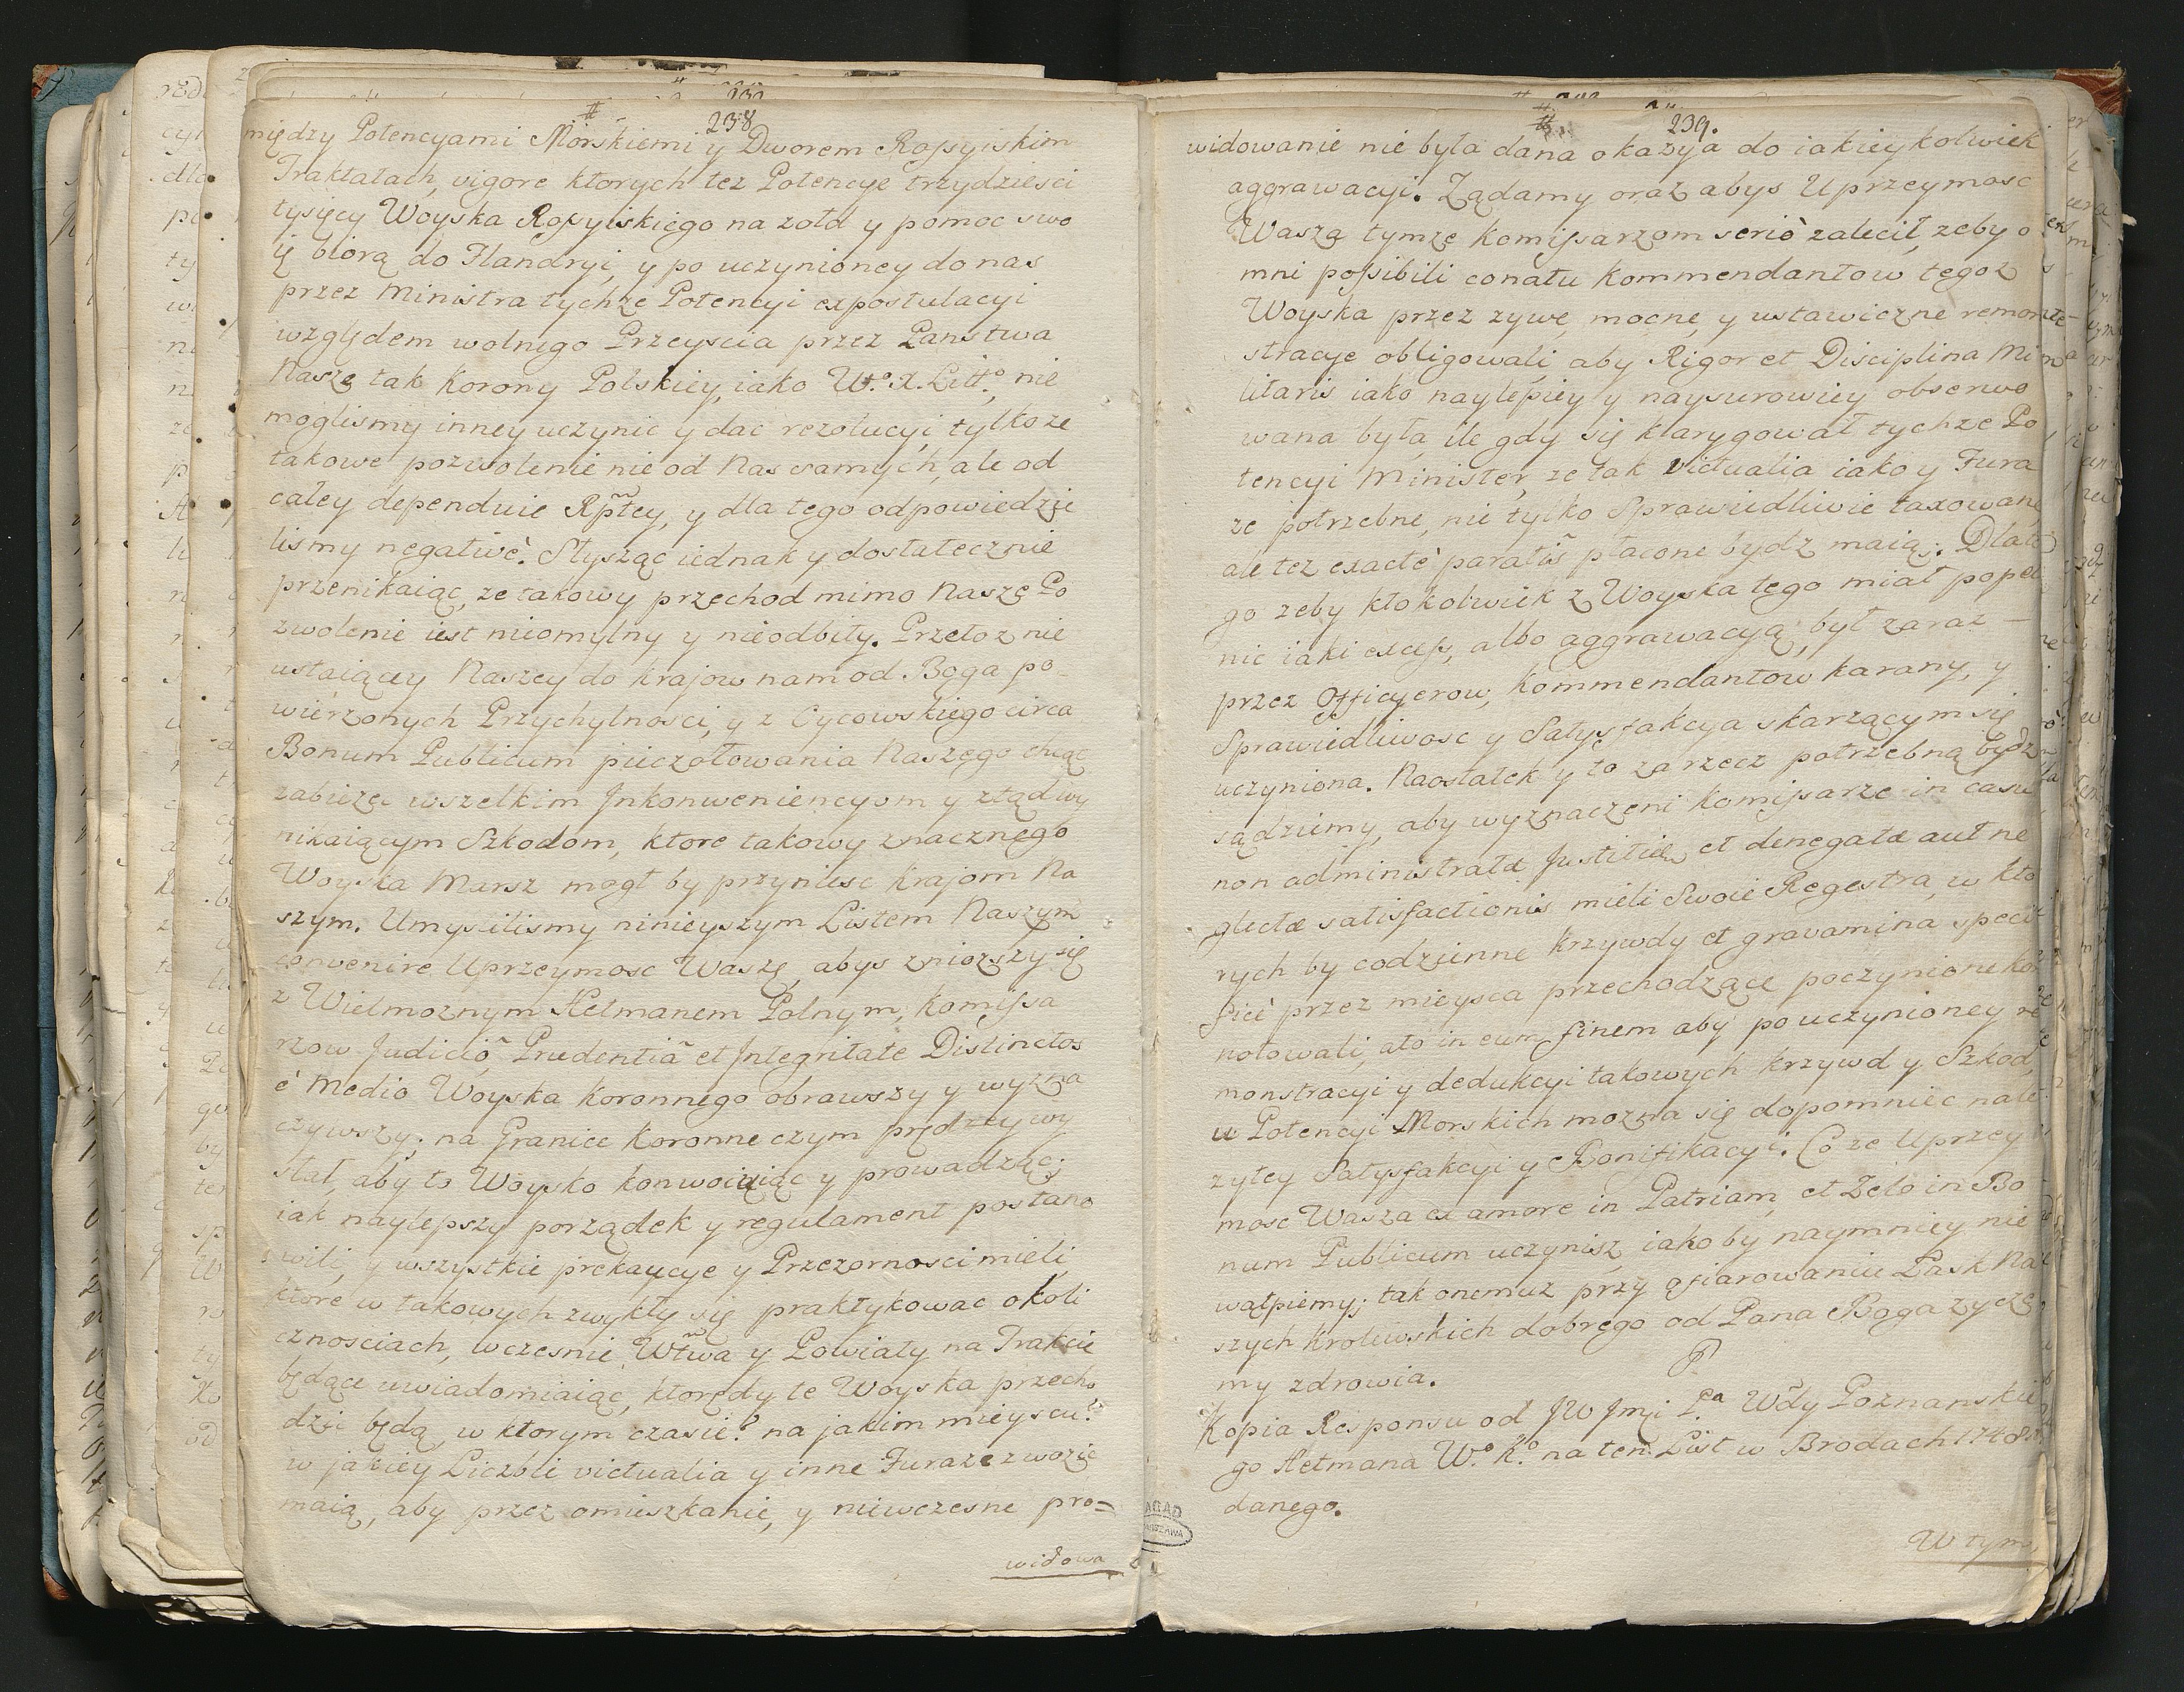 238
między Potencyami Morskiemi y Dworem Rossyiskim
Traktatach, vigore ktorych tez Potencye trzydziesci
tysięcy Woyska Rossyiskiego na zołd y pomoc swo
ię biorą do Flandryi, y po uczynioney do nas
przez Ministra tychże Potencyi expostulacyi
względem wolnego Przeyscia przez Panstwa
Nasze tak Korony Polskiey, iako W.º X. Litt.º, nie
moglismy inney uczynic y dac rezolucyi, tylko ze
takowe pozwolenie nie od Nas samych, ale od
całey dependuie Rptey, y dla tego odpowiedzie
lismy negativè. Słysząc iednak y dostatecznie
przenikaiąc, ze takowy przechod mimo Nasze Po
zwolenie iest niomylny y nieodbity. Przetoz nie
ustaiącey Naszey do krajow nam od Boga po-
wierzonych Przychylnosci, y z Oycowskiego circa
Bonum Publicum pieczołowania Naszego chcąc
zabieżec wszelkim Inkonweniencyom y ztąd wy
nikaiącym Szkodom, ktore takowy znacznego
Woyska Marsz mogł by przyniesc krajom Na
szym. Umyslilismy ninieyszym Listem Naszym
convenire Uprzeymosc Waszę, abys zniozszy się
z Wielmoznym Hetmanem Polnym, Komissa
rzow Judicio, Prudentiâ et Integritate Distinctos
è Medio Woyska Koronnego obrawszy y wyzna
czywszy; na Granice Koronne czym prędzey wy
słał, aby to Woysko konwoiuiąc y prowadząc
iak naylepszy porządek y regulament postano
wili, y wszystkie prekaucye y Przezornosci mieli,
ktore w takowych zwykły się praktykowac okoli
cznosciach, wczesnie Wtwa y Powiaty na Trakcie
będące uwiadomiaiąc, ktorędy te Woyska przecho
dzic będą, w ktorym czasie? na jakim mieyscu?
w jakiey Liczbie victualia y inne Furaze zwozic
maią, aby przez omieszkanie, y niewczesne pro=
widowa
239.
widowanie nie była dana okazya do iakieykolwiek
aggrawacyi. Ządamy oraz abys Uprzeymosc
Wasza tymze Komissarzom seriò zalecił, zeby o
mni possibili conatu Kommendantow tegoz
Woyska przez zywe, mocne, y ustawiczne remon
stracye obligowali, aby Rigor et Disciplina Mi
litaris iako naylepiey y naysurowiey obserwo
wana była, ile gdy się klarygował tychze Po
tencyi Minister, ze tak victualia iako y Fura
ze potrzebne, nie tylko Sprawiedliwie taxowane,
ale tez exactè paratis płacone bydz maią; Dlate
go zeby ktokolwiek z Woyska tego miał popeł
nic iaki excess, albo aggrawacyą, był zaraz —
przez Officyerow, Kommendantow karany, y
Sprawiedliwosc y Satysfakcya skarzącym się
uczyniona. Naostatek y to za rzecz potrzebną bydz
sądziemy, aby wyznaczeni Komissarze in casu
non administratæ Justitiæ, et denegatæ aut ne
glectæ satisfactionis mieli Swoie Regestra, w kto
rych by codzienne krzywdy et gravamina speci
ficè przez mieysca przechodzące poczynione kon
notowali, a to in eum finem aby po uczynioney re
monstracyi y dedukcyi takowych krzywd y Szkod,
u Potencyi Morskich mozna się dopomniec nale
zytey Satysfakcyi y Bonifikacyi. Co ze Uprzey
mosc Wasza ex amore in Patriam, et Zelo in Bo
num Publicum uczynisz, iakoby naymniey nie
wątpiemy; tak onemuz przy ofiarowaniu Łask Na
szych Krolewskich dobrego od Pana Boga zycze
my zdrowia.
Kopia Responsu od JW Jmci P.ª Wdy Poznanskie
go Hetmana W.º K.º na ten List w Brodach 1748
danego.
W tym
AGAD
WARSZAWA